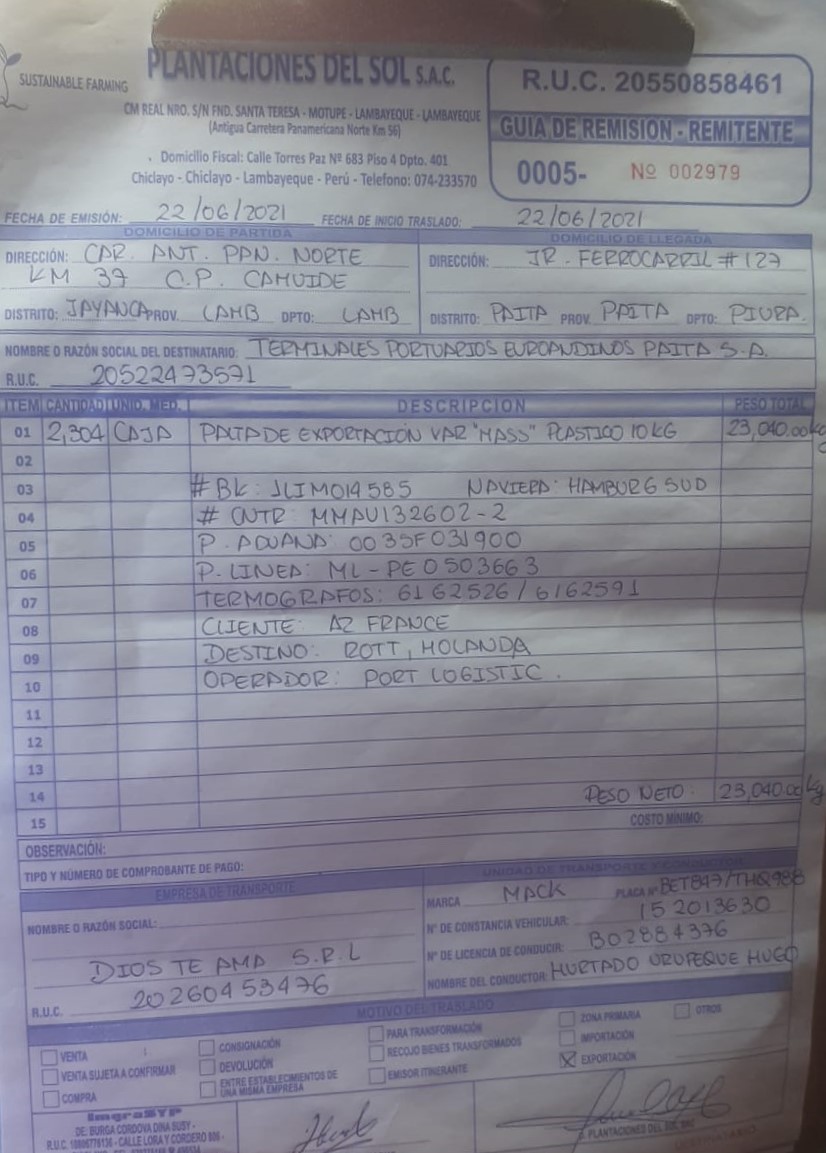 SUSTAINABLE FARMING
PLANTACIONES DEL SOL S.A.C.
CM REAL NRO. S/N FND. SANTA TERESA - MOTUPE - LAMBAYEQUE - LAMBAYEQUE
(Antigua Carretera Panamericana Norte Km 56)
Domicilio Fiscal: Calle Torres Paz Nº 683 Piso 4 Dpto. 401
Chiclayo - Chiclayo - Lambayeque - Perú - Telefono: 074-233570
R.U.C. 20550858461
GUIA DE REMISION - REMITENTE
0005- Nº 002979
FECHA DE EMISIÓN: 22/06/2021 FECHA DE INICIO TRASLADO: 22/06/2021
DOMICILIO DE PARTIDA
DIRECCIÓN: CAR. ANT. PAN. NORTE
KM 37 C.P. CAHUIDE
DISTRITO: JAYANCA PROV. LAMB DPTO: LAMB
DOMICILIO DE LLEGADA
DIRECCIÓN: JR. FERROCARRIL #127
DISTRITO: PAITA PROV. PAITA DPTO: PIURA.
NOMBRE O RAZÓN SOCIAL DEL DESTINATARIO: TERMINALES PORTUARIOS EUROANDINOS PAITA S.A.
R.U.C. 20522473571
ITEM CANTIDAD UNID. MED. DESCRIPCION PESO TOTAL
01 2,304 CAJA PALTA DE EXPORTACIÓN VAR "HASS" PLASTICO 10 KG 23,040.00 kg
02
03 # BK: JLIM014585 NAVIERA: HAMBURG SUD
04 # CNTR: MMAU132602-2
05 P. ADUANA: 0035F031900
06 P. LINEA: ML-PE0503663
07 TERMOGRAFOS: 6162526 / 6162591
08 CLIENTE: AZ FRANCE
09 DESTINO: ROTT, HOLANDA
10 OPERADOR: PORT LOGISTIC.
11
12
13
14 PESO NETO: 23,040.00 kg
15 COSTO MÍNIMO:
OBSERVACIÓN:
TIPO Y NÚMERO DE COMPROBANTE DE PAGO:
EMPRESA DE TRANSPORTE
NOMBRE O RAZÓN SOCIAL:
DIOS TE AMA S.R.L
R.U.C. 20260453476
UNIDAD DE TRANSPORTE Y CONDUCTOR
MARCA MACK PLACA Nº BET847/THQ988
Nº DE CONSTANCIA VEHICULAR: 152013630
Nº DE LICENCIA DE CONDUCIR: B02884376
NOMBRE DEL CONDUCTOR: HURTADO URUPEQUE HUGO
MOTIVO DEL TRASLADO
VENTA
VENTA SUJETA A CONFIRMAR
COMPRA
CONSIGNACIÓN
DEVOLUCIÓN
ENTRE ESTABLECIMIENTOS DE
UNA MISMA EMPRESA
PARA TRANSFORMACIÓN
RECOJO BIENES TRANSFORMADOS
EMISOR ITINERANTE
ZONA PRIMARIA
IMPORTACIÓN
X EXPORTACIÓN
OTROS
ImgraSYP
DE: BURGA CORDOVA DINA SUSY -
R.U.C. 10806778136 - CALLE LORA Y CORDERO 806 -
PLANTACIONES DEL SOL SAC
DESTINATARIO